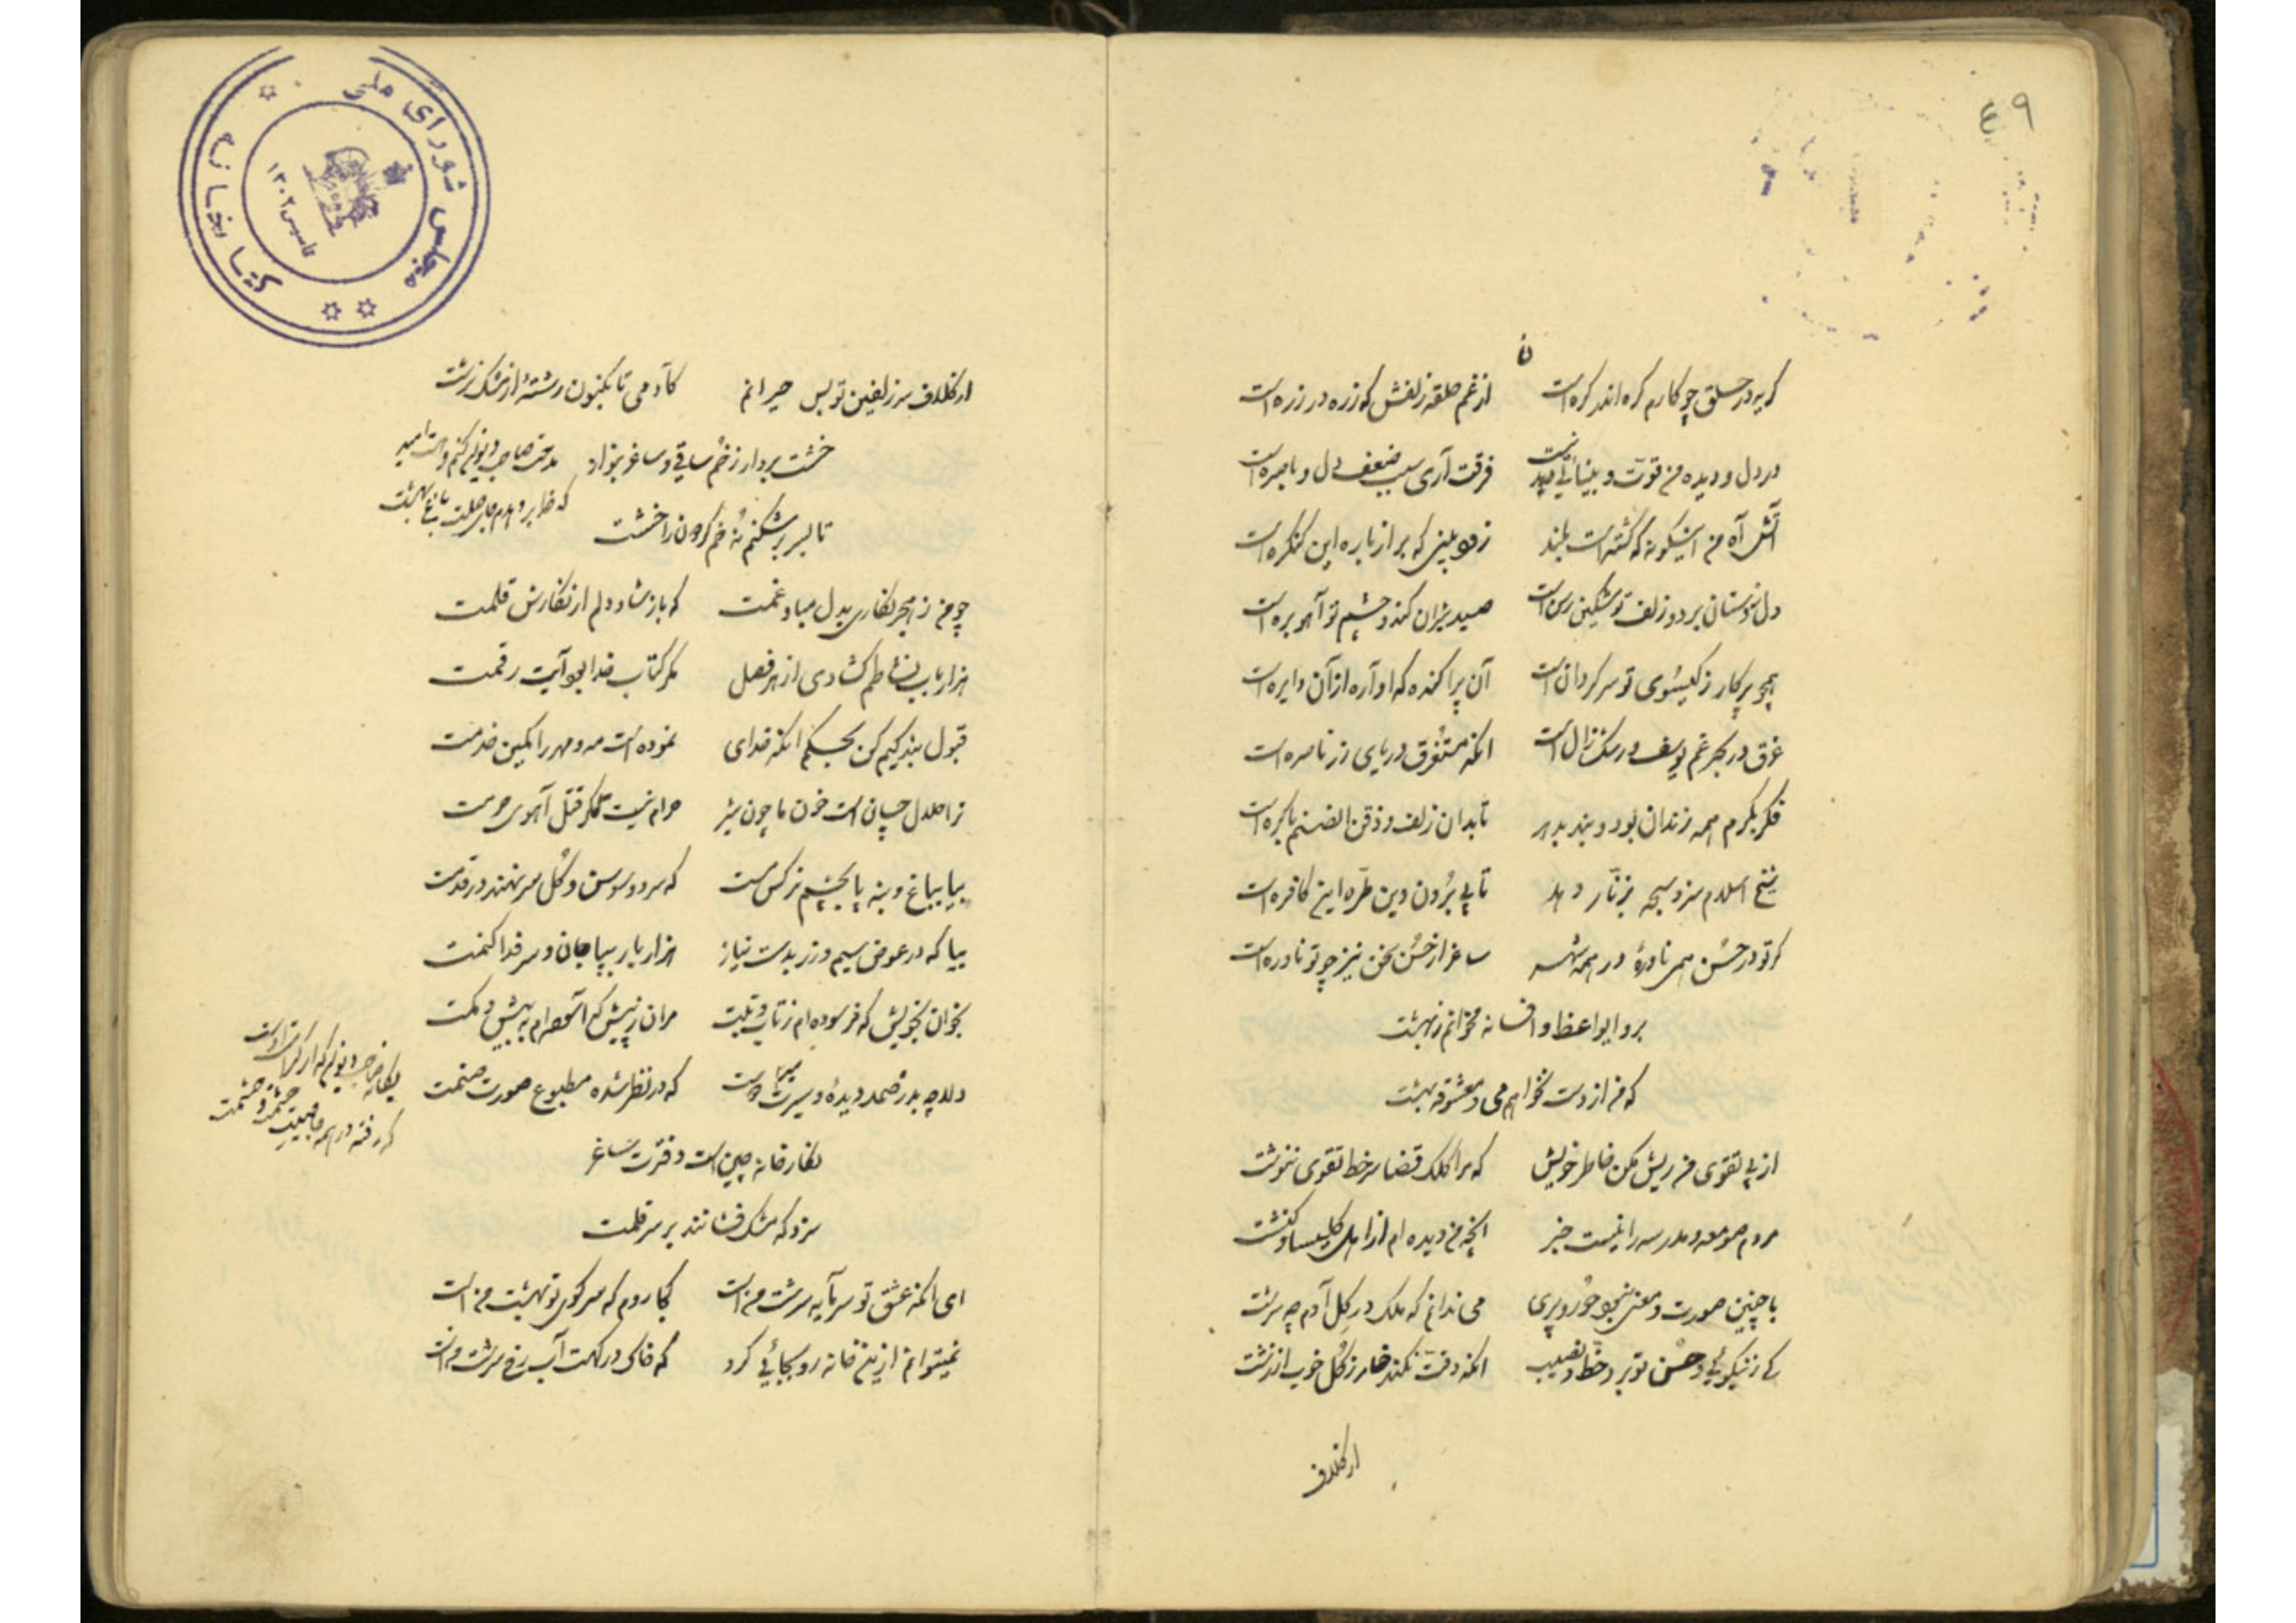 ٤٩
گریه در حلق چو کارم گره اندر گره است
از غم حلقه زلفش که زره در زره است
در دل و دیده من قوت و بینائی نیست
فرقت آری سبب ضعف دل و باصره است
آتش آه من اینگونه که گشته است بلند
زود بینی که بر از باره این کنگره است
دل ز دستان برد و زلف تو مشکین رسن است
صید شیران کند و چشم تو آهو بره است
همچو پرگار ز گیسوی تو سرگردان است
آن پراکنده که او آره از آن دایره است
غرق در بحر غم یوسف و رشک زال است
آنکه مستغرق دریای زر ناصره است
فکر بکرم همه زندان بود و بند بدهر
تا بدان زلف و ذقن الصنم باکره است
شیخ اسلام سزد سبحه بزنار دهد
تا پی بردن دین طره این کافره است
گر تو در حسن همی نادرهٔ در همه شهر
ساغر از حسن سخن نیز چو تو نادره است
برو ایواعظ و افسانه مخوانم ز بهشت
که من از دست نخواهم می و معشوقه بهشت
از پی تقوی من ریش مکن خاطر خویش
که مرا کلک قضا سر خط تقوی ننوشت
مردم صومعه و مدرسه را نیست خبر
آنچه من دیده ام از اهل کلیسا و کنشت
با چنین صورت و معنی نبود حور و پری
می ندانم که ملک در گل آدم چه سرشت
کی ز نیکوئی و حسن تو برد حظ و نصیب
آنکه دقت نکند خار ز گل خوب از زشت
از کلاف
از کلاف سر زلفین تو بس حیرانم
کآدمی تا بکنون رشتهٔ از مشک نرشت
خشت بردار ز خم ساقی و ساغر بنواز
تا بسر بر شکنم نه خم گردون را خشت
مدحت صاحب دیوان کنم و هست امید
چو من ز هجر نگاری بدل مباد غمت
که باز شاد دلم از نگارش قلمت
هزار باب نشاطم گشادی از هر فصل
مگر کتاب خدا بود آیت رقمت
قبول بندگیم کن بحکم آنکه خدای
نموده است مه و مهر را کمین خدمت
ترا حلال چسان است خون ما چون شیر
حرام نیست مگر قتل آهوی حرمت
بیا بباغ و بنه پا بچشم نرگس مست
که سرو و سوسن و گل سر نهند در قدمت
بیا که در عوض سیم و زر بدست نیاز
هزار بار بپا جان و سر فدا کنمت
بخوان بخویش که فرسوده ام ز تاب و تبت
مران ز پیش که آسوده ام به بیش و کمت
دلا چه بد ز صمد دیدهٔ و سیرت
که در نظر شده مطبوع صورت صنمت
نگارخانه چین است دفترت ساغر
سزد که مشک فشانند بر سر قلمت
ای آنکه عشق تو سرمایه سرشت من است
کجا روم که سر کوی تو بهشت من است
نمیتوانم ازین خانه رو بجائی کرد
که خاک درگهت آب رخ سرشت من است
کتابخانه مجلس شورای ملی
تاسیس ۱۳۰۲